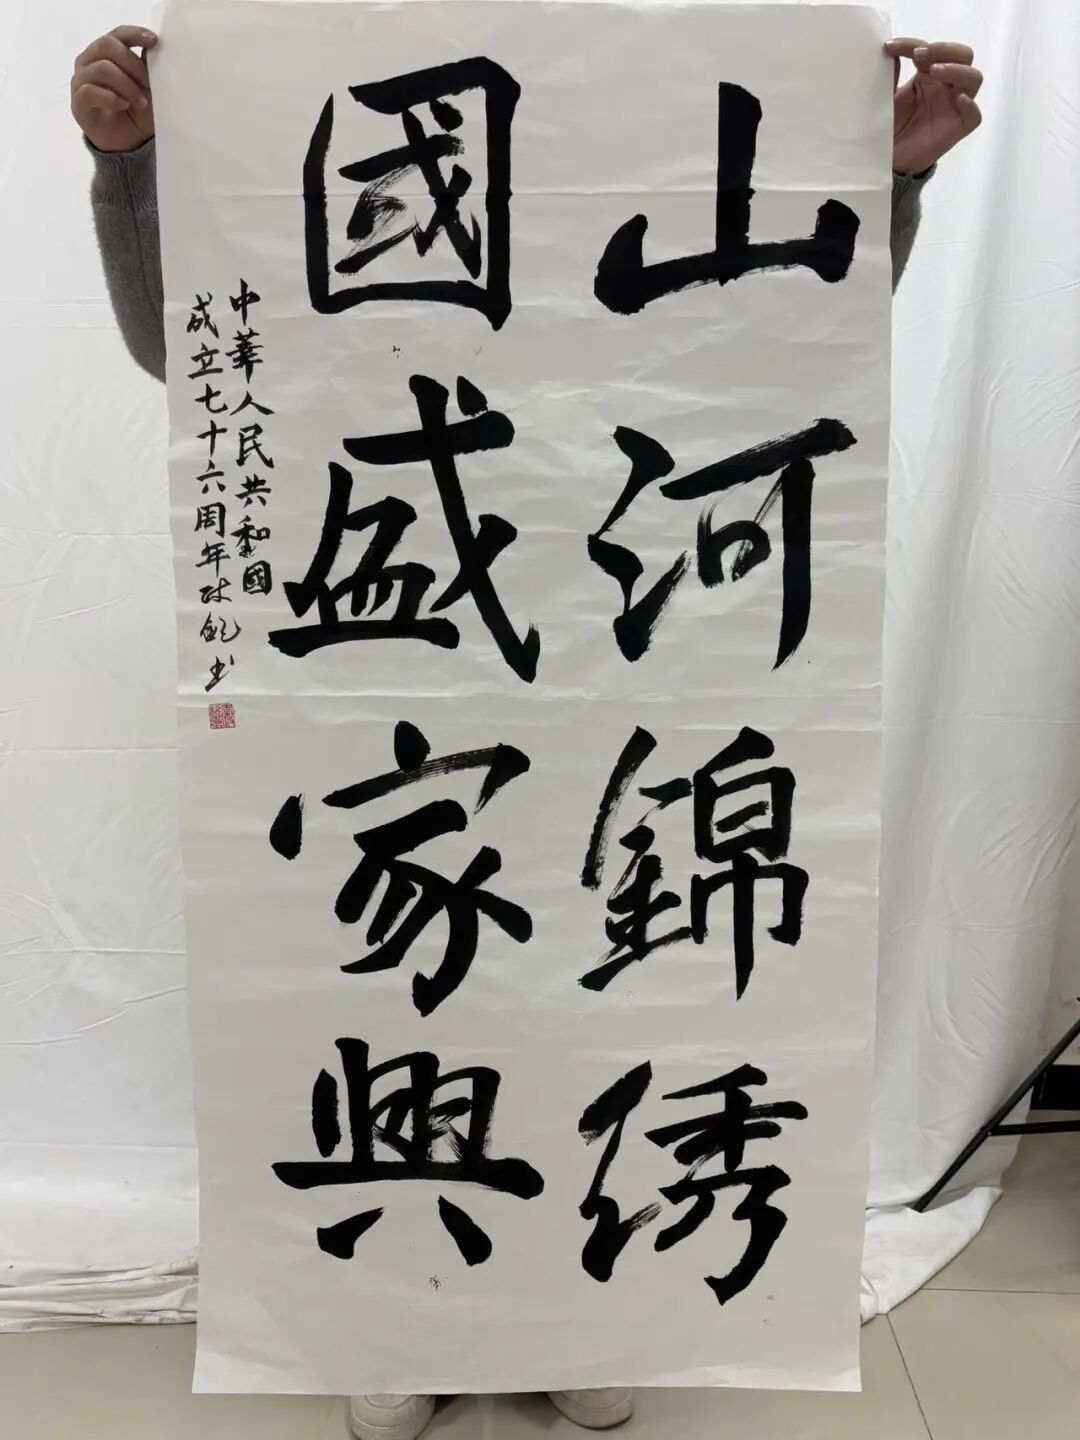 山河錦绣
國盛家興
中華人民共和國
成立七十六周年
书